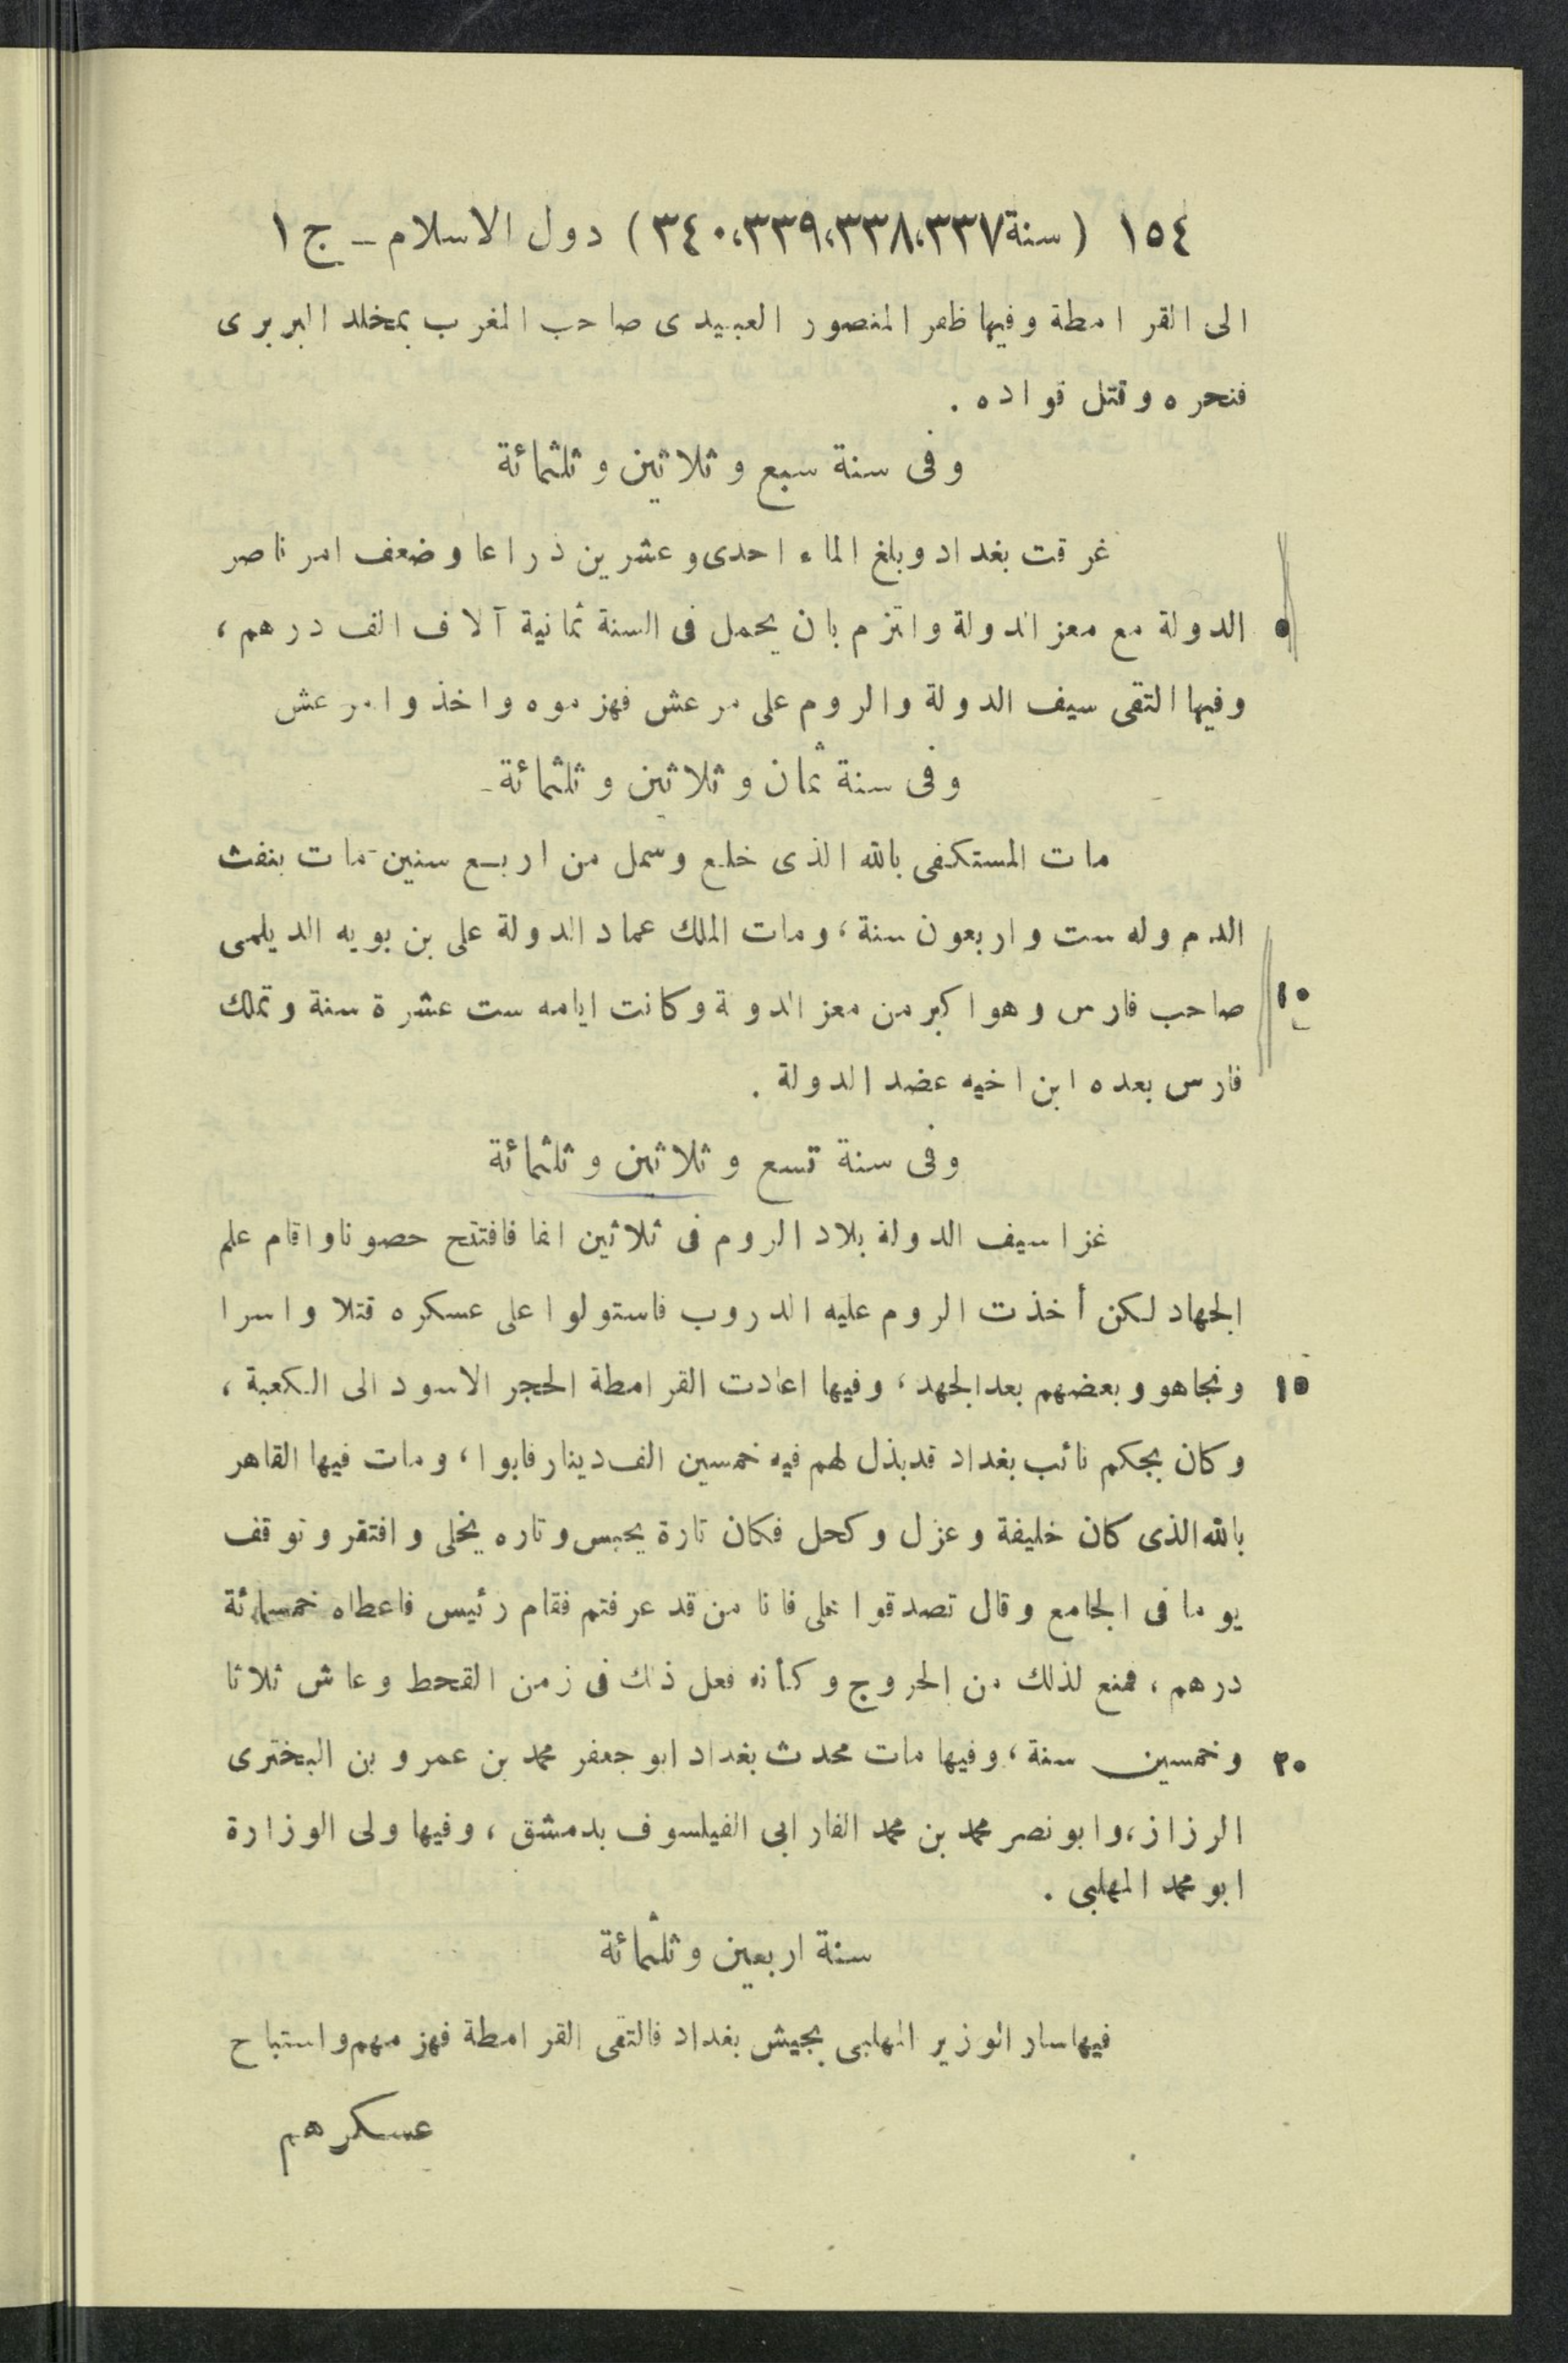 ١٥٤ (سنة ٣٣٧،٣٣٨،٣٣٩،٣٤٠) دول الاسلام ـ ج ١
الى القرامطة وفيها ظفر المنصور العبيدى صاحب المغرب بمخلد البربرى
فنحره وقتل قواده .
وفى سنة سبع وثلاثين وثلثمائة
غرقت بغداد وبلغ الماء احدى وعشرين ذراعا وضعف امر ناصر
٥ الدولة مع معز الدولة والتزم بان يحمل فى السنة ثمانية آلاف الف درهم ،
وفيها التقى سيف الدولة والروم على مرعش فهزموه واخذوا مرعش
وفى سنة ثمان وثلاثين وثلثمائة
مات المستكفى بالله الذى خلع وسمل من اربع سنين مات بنفث
الدم وله ست واربعون سنة ، ومات الملك عماد الدولة على بن بويه الديلمى
١٠ صاحب فارس وهو اكبر من معز الدولة وكانت ايامه ست عشرة سنة وتملك
فارس بعده ابن اخيه عضد الدولة .
وفى سنة تسع وثلاثين وثلثمائة
غزا سيف الدولة بلاد الروم فى ثلاثين الفا فافتتح حصونا واقام علم
الجهاد لكن أخذت الروم عليه الدروب فاستولوا على عسكره قتلا واسرا
١٥ ونجا هو وبعضهم بعد الجهد ، وفيها اعادت القرامطة الحجر الاسود الى الكعبة ،
وكان بجكم نائب بغداد قد بذل لهم فيه خمسين الف دينار فابوا ، ومات فيها القاهر
بالله الذى كان خليفة وعزل وكحل فكان تارة يحبس وتاره يخلى وافتقر وتوقف
يوما فى الجامع وقال تصدقوا على فانا من قد عرفتم فقام رئيس فاعطاه خمسمائة
درهم ، فمنع لذلك من الخروج وكأنه فعل ذلك فى زمن القحط وعاش ثلاثا
٢٠ وخمسين سنة ، وفيها مات محدث بغداد ابو جعفر محمد بن عمرو بن البخترى
الرزاز ، وابو نصر محمد بن محمد الفارابى الفيلسوف بدمشق ، وفيها ولى الوزارة
ابو محمد المهلبى .
سنة اربعين وثلثمائة
فيها سار الوزير المهلبى بجيش بغداد فالتقى القرامطة فهزمهم واستباح
عسكرهم